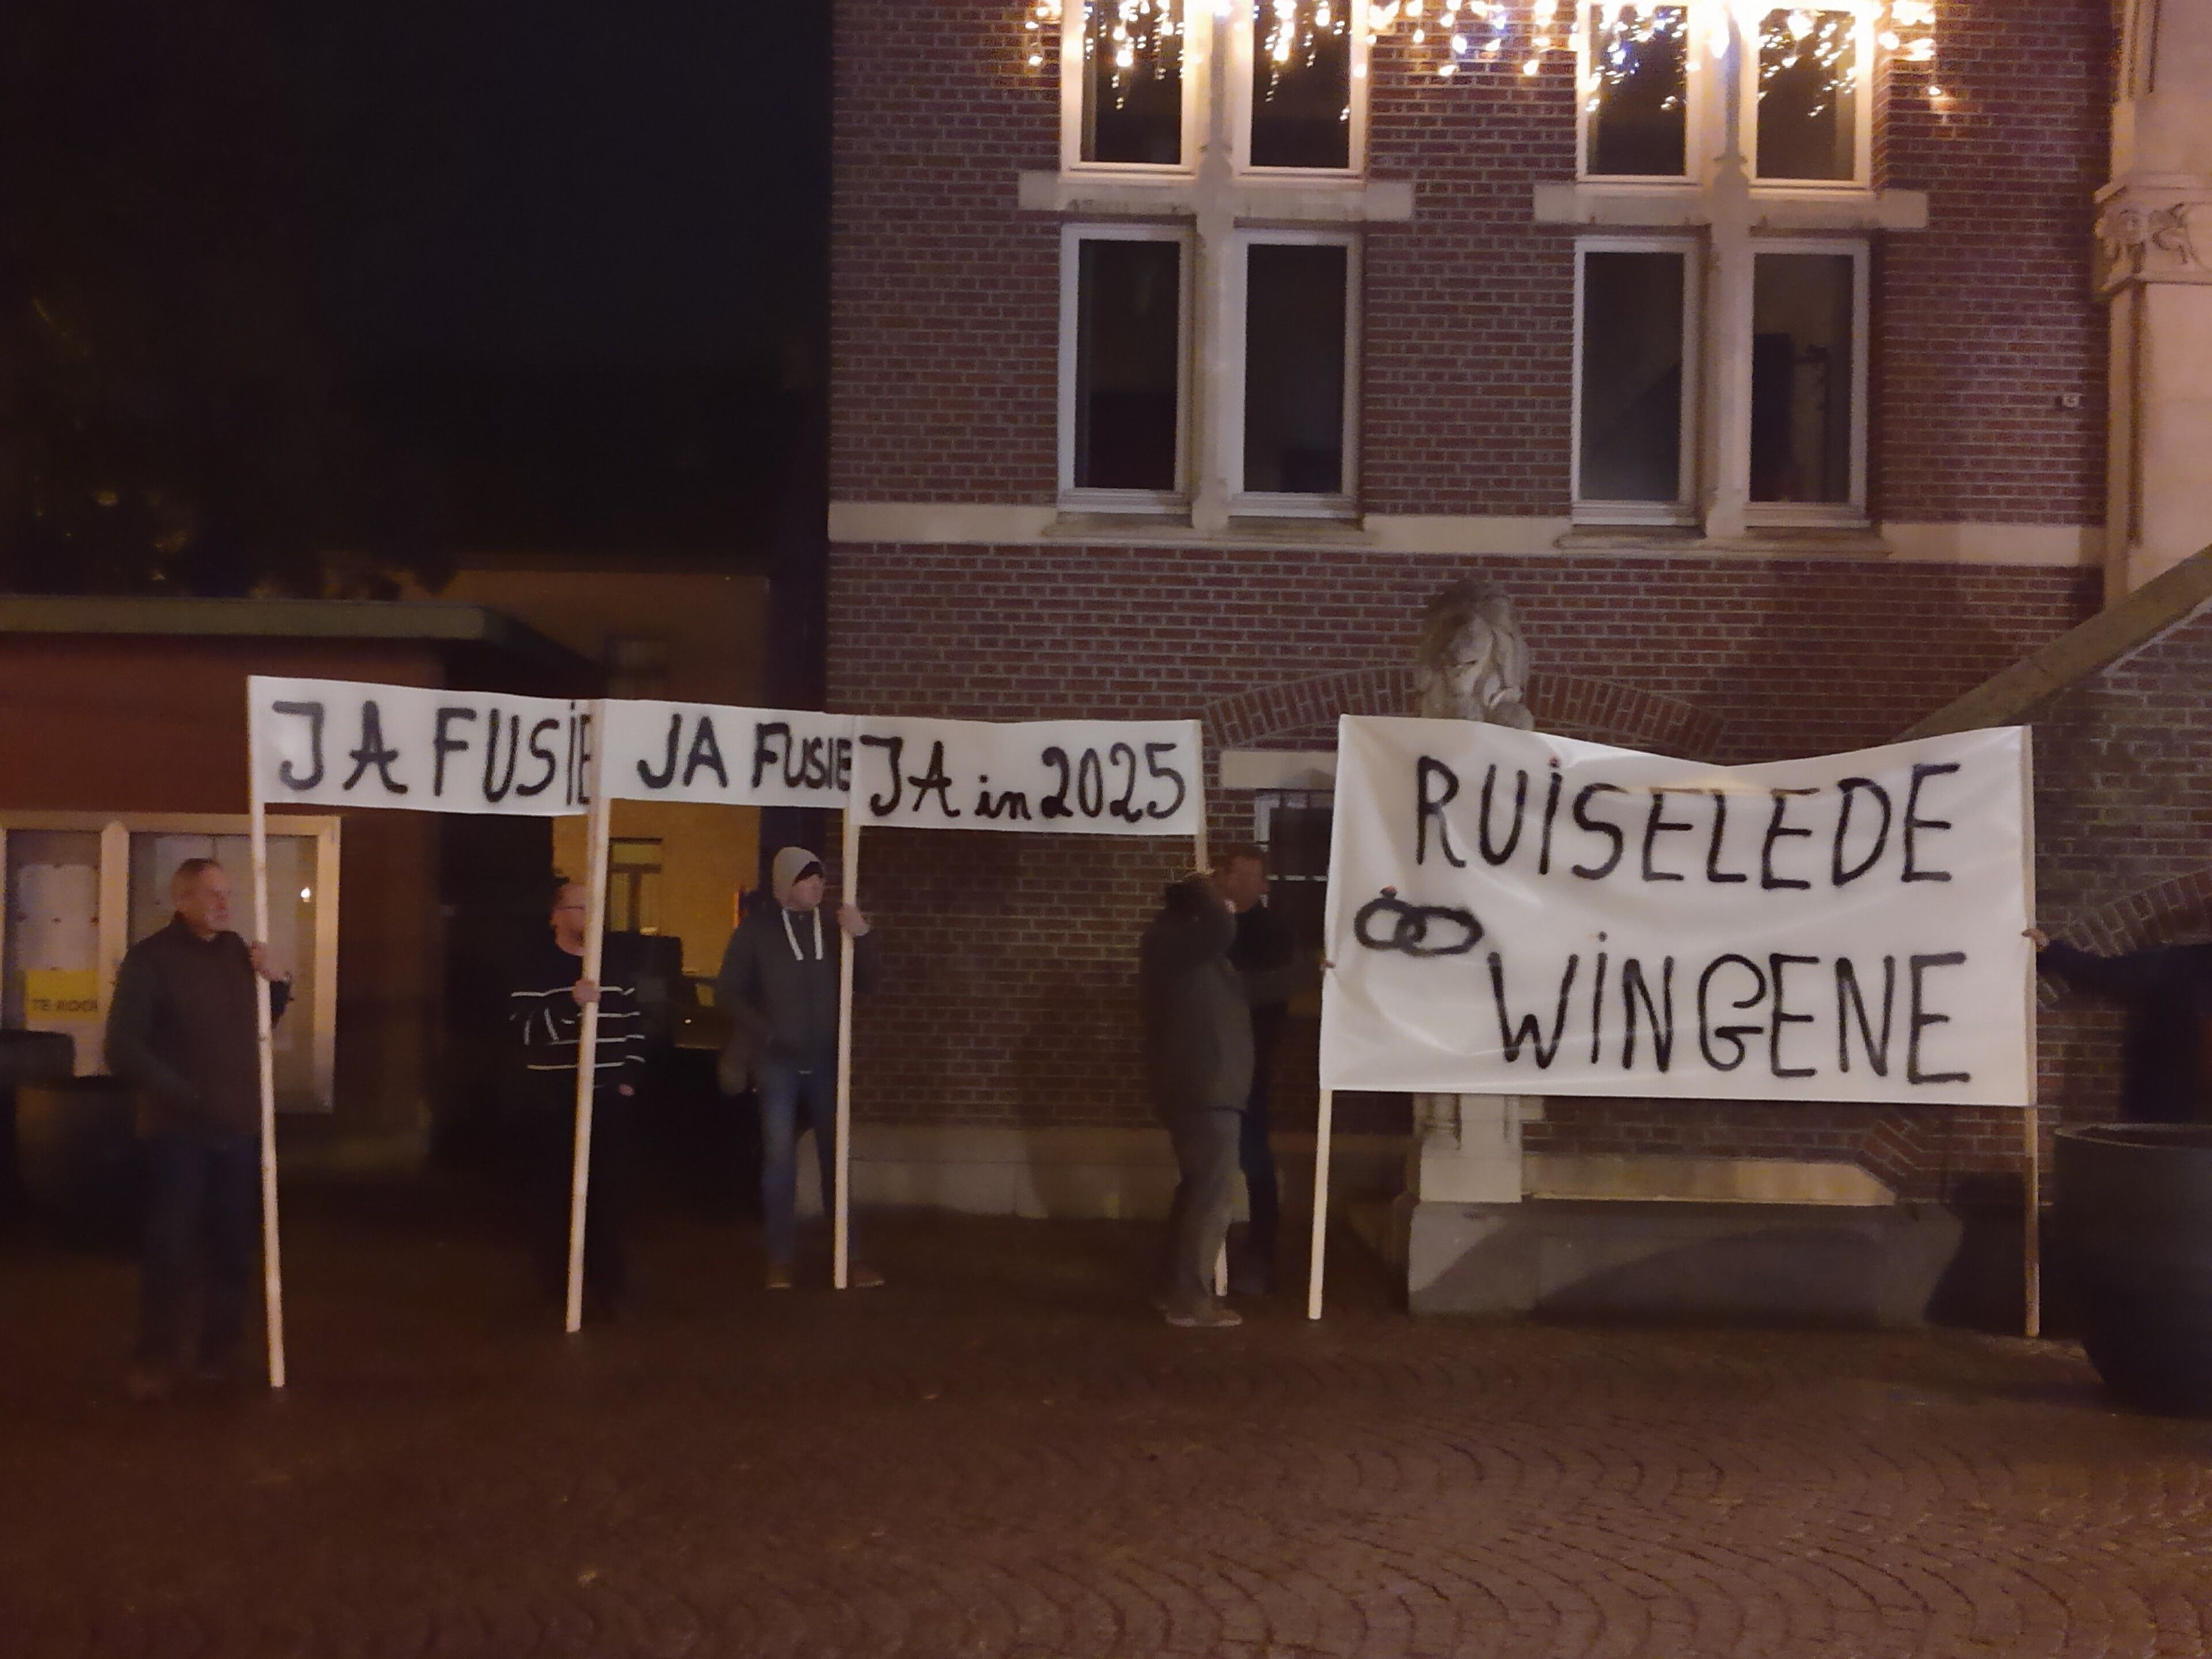 JA FUSIE
JA FUSIE
JA in 2025
RUISELEDE
WINGENE
TE KOOP